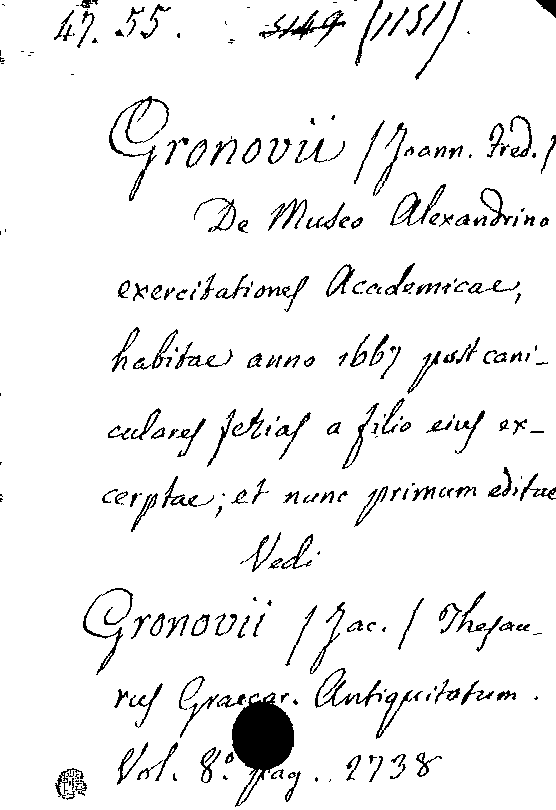 47. 55. 5149 (1151).
Gronovii (Joann. Fred.)
De Museo Alexandrino
exercitationes Academicae,
habitae anno 1667 post cani-
culares ferias a filio eius ex-
cerptae; et nunc primum editae
Vedi
Gronovii (Jac.) Thesau-
rus Graecar. Antiquitatum.
Vol. 8º. pag. 2738